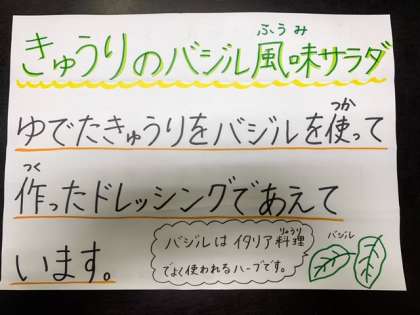 ふうみ
きゅうりのバジル風味サラダ
つか
ゆでたきゅうりをバジルを使って
つく
作ったドレッシングであえて
います。
りょうり
バジルはイタリア料理
でよく使われるハーブです。
バジル